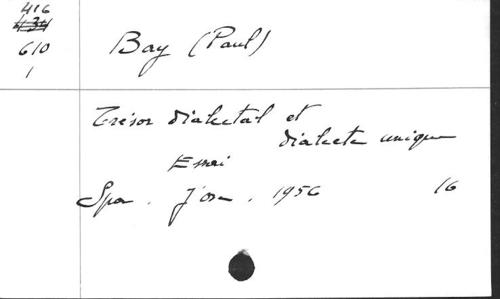 416
434
610
1
Bay (Paul)
Trésor dialectal et
dialecte unique
Essai
Spa. J'ose. 1956 16